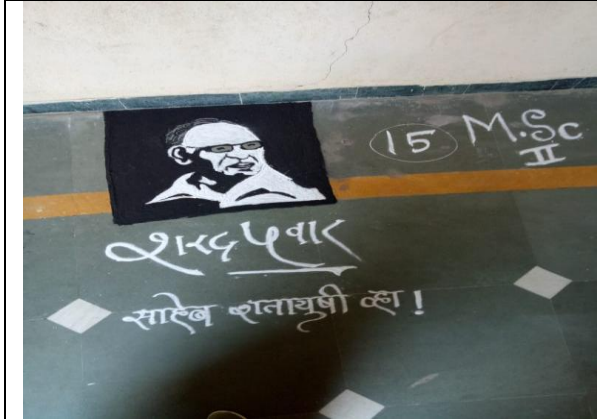 15 M.Sc
II
शरद पवार
साहेब शतायुषी व्हा !